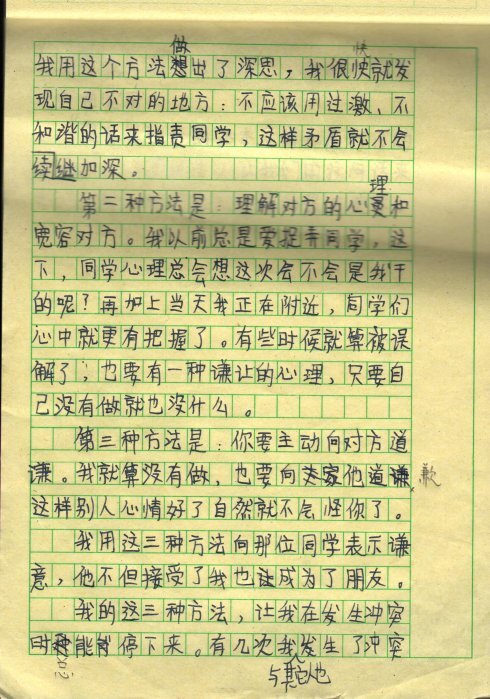 做 快
我用这个方法想出了深思，我很快就发
现自己不对的地方：不应该用过激、不
和谐的话来指责同学，这样矛盾就不会
续继加深。
理
第二种方法是：理解对方的心里和
宽容对方。我以前总是爱捉弄同学，这
下，同学心理总会想这次会不会是我干
的呢？再加上当天我正在附近，同学们
心中就更有把握了。有些时候就算被误
解了，也要有一种谦让的心理，只要自
己没有做就也没什么。
第三种方法是：你要主动向对方道
谦。我就算没有做，也要向大家他道谦， 歉
这样别人心情好了自然就不会怪你了。
我用这三种方法向那位同学表示谦
意，他不但接受了我也让成为了朋友。
我的这三种方法，让我在发生冲突
时能停下来。有几次我发生了冲突
与其他